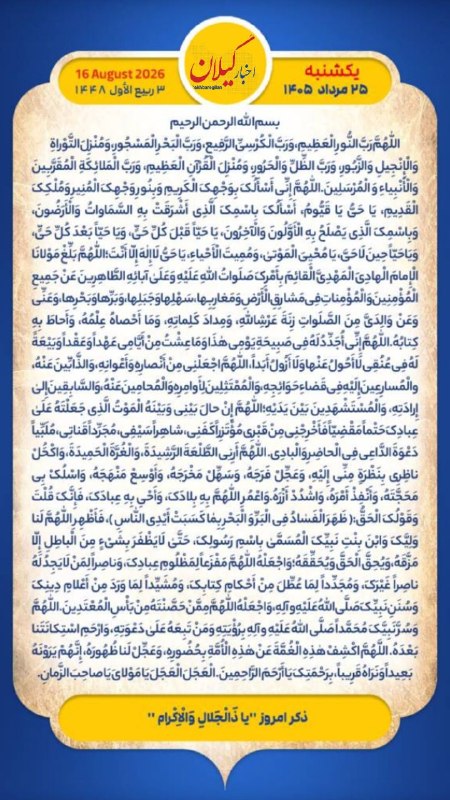 اخبار گیلان
akhbaregilan
یکشنبه
۲۵ مرداد ۱۴۰۵
16 August 2026
۳ ربیع الأول ۱۴۴۸
بسم الله الرحمن الرحیم
اَللّٰهُمَّ رَبَّ النُّورِ الْعَظِیمِ، وَرَبَّ الْکُرْسِیِّ الرَّفِیعِ، وَرَبَّ الْبَحْرِ الْمَسْجُورِ، وَمُنْزِلَ التَّوْراةِ
وَالْإِنْجِیلِ وَالزَّبُورِ، وَرَبَّ الظِّلِّ وَالْحَرُورِ، وَمُنْزِلَ الْقُرْآنِ الْعَظِیمِ، وَرَبَّ الْمَلائِکَةِ الْمُقَرَّبِینَ
وَالْأَنْبِیاءِ وَ الْمُرْسَلِینَ. اللّٰهُمَّ إِنِّی أَسْأَلُکَ بِوَجْهِکَ الْکَرِیمِ وَبِنُورِ وَجْهِکَ الْمُنِیرِ وَمُلْکِکَ
الْقَدِیمِ، یَا حَیُّ یَا قَیُّومُ، أَسْأَلُکَ بِاسْمِکَ الَّذِی أَشْرَقَتْ بِهِ السَّمَاوَاتُ وَالْأَرَضُونَ،
وَبِاسْمِکَ الَّذِی یَصْلَحُ بِهِ الْأَوَّلُونَ وَالْآخِرُونَ، یَا حَیّاً قَبْلَ کُلِّ حَیٍّ، وَیَا حَیّاً بَعْدَ کُلِّ حَیٍّ،
وَیَا حَیّاً حِینَ لَا حَیَّ، یَا مُحْیِیَ الْمَوْتىٰ، وَمُمِیتَ الْأَحْیاءِ، یَا حَیُّ لَا إِلٰهَ إِلّا أَنْتَ؛ اللّٰهُمَّ بَلِّغْ مَوْلانَا
الْإِمامَ الْهادِیَ الْمَهْدِیَّ الْقائِمَ بِأَمْرِکَ صَلَواتُ اللّٰهِ عَلَیْهِ وَعَلَىٰ آبائِهِ الطَّاهِرِینَ عَنْ جَمِیعِ
الْمُؤْمِنِینَ وَالْمُؤْمِناتِ فِی مَشارِقِ الْأَرْضِ وَمَغارِبِها، سَهْلِها وَجَبَلِها، وَبَرِّها وَبَحْرِها، وَعَنِّی
وَعَنْ والِدَیَّ مِنَ الصَّلَواتِ زِنَةَ عَرْشِ اللّٰهِ، وَمِدادَ کَلِماتِهِ، وَمَا أَحْصاهُ عِلْمُهُ، وَأَحاطَ بِهِ
کِتابُهُ. اللّٰهُمَّ إِنِّی أُجَدِّدُ لَهُ فِی صَبِیحَةِ یَوْمِی هٰذَا وَمَا عِشْتُ مِنْ أَیَّامِی عَهْداً وَعَقْداً وَبَیْعَةً
لَهُ فِی عُنُقِی لَا أَحُولُ عَنْها وَلَا أَزُولُ أَبَداً، اللّٰهُمَّ اجْعَلْنِی مِنْ أَنْصارِهِ وَأَعْوانِهِ، وَالذَّابِّینَ عَنْهُ،
وَالْمُسارِعِینَ إِلَیْهِ فِی قَضاءِ حَوَائِجِهِ، وَالْمُمْتَثِلِینَ لِأَوامِرِهِ وَالْمُحامِینَ عَنْهُ، وَالسَّابِقِینَ إِلىٰ
إِرادَتِهِ، وَالْمُسْتَشْهَدِینَ بَیْنَ یَدَیْهِ؛ اللّٰهُمَّ إِنْ حالَ بَیْنِی وَبَیْنَهُ الْمَوْتُ الَّذِی جَعَلْتَهُ عَلَىٰ
عِبادِکَ حَتْماً مَقْضِیّاً فَأَخْرِجْنِی مِنْ قَبْرِی مُؤْتَزِراً کَفَنِی، شاهِراً سَیْفِی، مُجَرِّداً قَناتِی، مُلَبِّیاً
دَعْوَةَ الدَّاعِی فِی الْحاضِرِ وَالْبادِی. اللّٰهُمَّ أَرِنِی الطَّلْعَةَ الرَّشِیدَةَ، وَالْغُرَّةَ الْحَمِیدَةَ، وَاکْحُلْ
ناظِرِی بِنَظْرَةٍ مِنِّی إِلَیْهِ، وَعَجِّلْ فَرَجَهُ، وَسَهِّلْ مَخْرَجَهُ، وَأَوْسِعْ مَنْهَجَهُ، وَاسْلُکْ بِی
مَحَجَّتَهُ، وَأَنْفِذْ أَمْرَهُ، وَاشْدُدْ أَزْرَهُ، وَاعْمُرِ اللّٰهُمَّ بِهِ بِلادَکَ، وَأَحْیِ بِهِ عِبادَکَ، فَإِنَّکَ قُلْتَ
وَقَوْلُکَ الْحَقُّ: ﴿ ظَهَرَ الْفَسادُ فِی الْبَرِّ وَ الْبَحْرِ بِما کَسَبَتْ أَیْدِی النَّاسِ ﴾، فَأَظْهِرِ اللّٰهُمَّ لَنا
وَلِیَّکَ وَابْنَ بِنْتِ نَبِیِّکَ الْمُسَمَّىٰ بِاسْمِ رَسُولِکَ، حَتَّىٰ لَا یَظْفَرَ بِشَیْءٍ مِنَ الْباطِلِ إِلّا
مَزَّقَهُ، وَیُحِقَّ الْحَقَّ وَیُحَقِّقَهُ؛ وَاجْعَلْهُ اللّٰهُمَّ مَفْزَعاً لِمَظْلُومِ عِبادِکَ، وَناصِراً لِمَنْ لَا یَجِدُ لَهُ
ناصِراً غَیْرَکَ، وَمُجَدِّداً لِمَا عُطِّلَ مِنْ أَحْکامِ کِتابِکَ، وَمُشَیِّداً لِمَا وَرَدَ مِنْ أَعْلامِ دِینِکَ
وَسُنَنِ نَبِیِّکَ صَلَّى اللّٰهُ عَلَیْهِ وَآلِهِ، وَاجْعَلْهُ اللّٰهُمَّ مِمَّنْ حَصَّنْتَهُ مِنْ بَأْسِ الْمُعْتَدِینَ. اللّٰهُمَّ
وَسُرَّ نَبِیَّکَ مُحَمَّداً صَلَّى اللّٰهُ عَلَیْهِ وَآلِهِ بِرُؤْیَتِهِ وَمَنْ تَبِعَهُ عَلَىٰ دَعْوَتِهِ، وَارْحَمِ اسْتِکانَتَنا
بَعْدَهُ. اللّٰهُمَّ اکْشِفْ هٰذِهِ الْغُمَّةَ عَنْ هٰذِهِ الْأُمَّةِ بِحُضُورِهِ، وَعَجِّلْ لَنا ظُهُورَهُ، إِنَّهُمْ یَرَوْنَهُ
بَعِیداً وَنَرَاهُ قَرِیباً، بِرَحْمَتِکَ یَا أَرْحَمَ الرَّاحِمِینَ. الْعَجَلَ الْعَجَلَ یَا مَوْلایَ یَا صاحِبَ الزَّمانِ.
ذکر امروز "یا ذَالْجَلالِ وَالْاِکْرام "